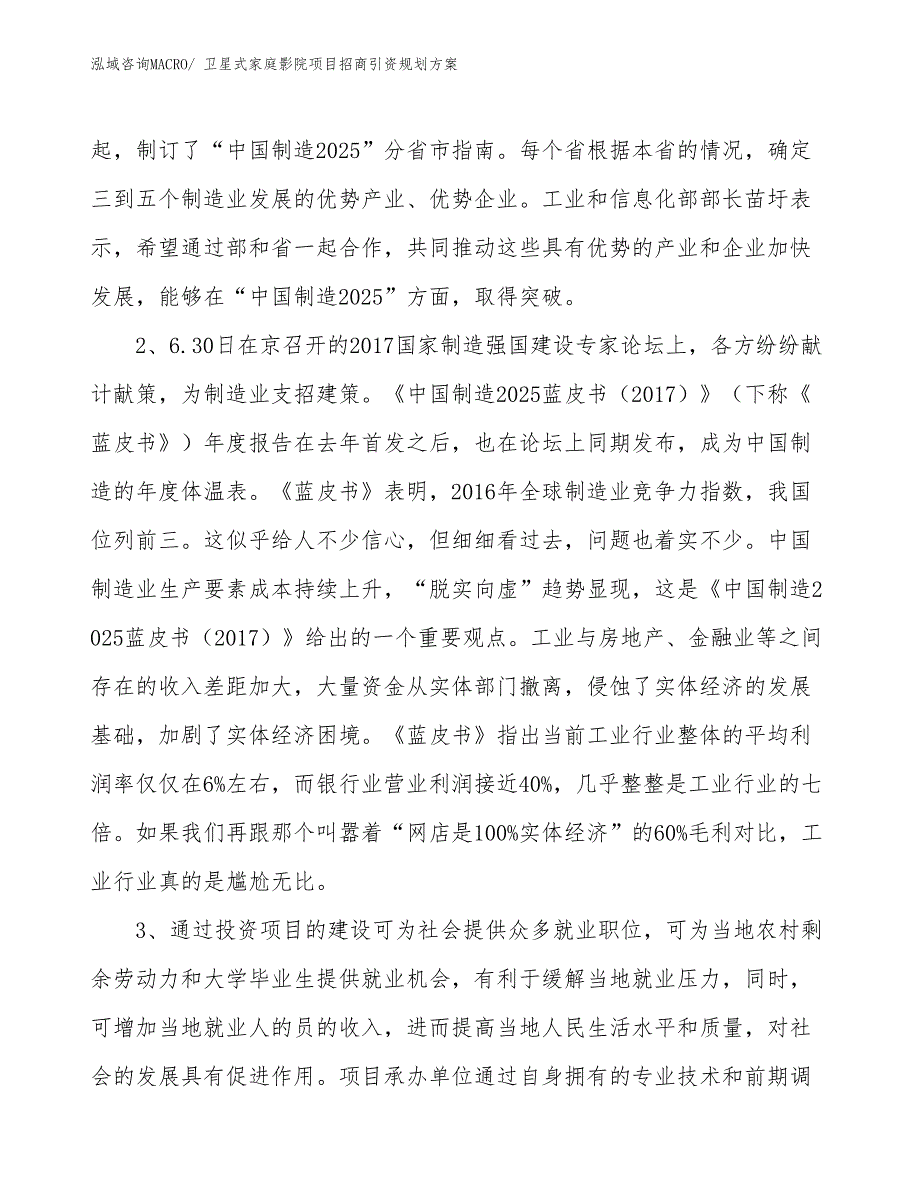 泓域咨询MACRO/ 卫星式家庭影院项目招商引资规划方案
起，制订了“中国制造2025”分省市指南。每个省根据本省的情况，确定
三到五个制造业发展的优势产业、优势企业。工业和信息化部部长苗圩表
示，希望通过部和省一起合作，共同推动这些具有优势的产业和企业加快
发展，能够在“中国制造2025”方面，取得突破。
2、6.30日在京召开的2017国家制造强国建设专家论坛上，各方纷纷献
计献策，为制造业支招建策。《中国制造2025蓝皮书（2017）》（下称《
蓝皮书》）年度报告在去年首发之后，也在论坛上同期发布，成为中国制
造的年度体温表。《蓝皮书》表明，2016年全球制造业竞争力指数，我国
位列前三。这似乎给人不少信心，但细细看过去，问题也着实不少。中国
制造业生产要素成本持续上升，“脱实向虚”趋势显现，这是《中国制造2
025蓝皮书（2017）》给出的一个重要观点。工业与房地产、金融业等之间
存在的收入差距加大，大量资金从实体部门撤离，侵蚀了实体经济的发展
基础，加剧了实体经济困境。《蓝皮书》指出当前工业行业整体的平均利
润率仅仅在6%左右，而银行业营业利润接近40%，几乎整整是工业行业的七
倍。如果我们再跟那个叫嚣着“网店是100%实体经济”的60%毛利对比，工
业行业真的是尴尬无比。
3、通过投资项目的建设可为社会提供众多就业职位，可为当地农村剩
余劳动力和大学毕业生提供就业机会，有利于缓解当地就业压力，同时，
可增加当地就业人的员的收入，进而提高当地人民生活水平和质量，对社
会的发展具有促进作用。项目承办单位通过自身拥有的专业技术和前期调